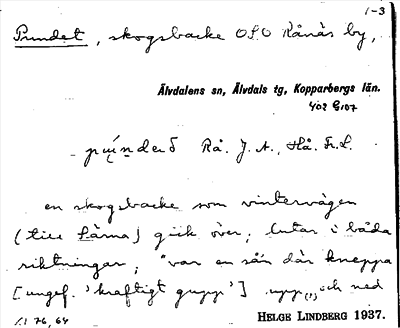 1-3
Pundet, skogsbacke OSO Rånäs by,
Älvdalens sn, Älvdals tg, Kopparbergs län.
Rå. J. A., Hå. Fr. L.
en skogsbacke som vintervägen
(till Särna) gick över; lutar i båda
riktningar, "var en sån där kneppa
[ungef. 'kraftigt gupp'] upp och ned
HELGE LINDBERG 1937.